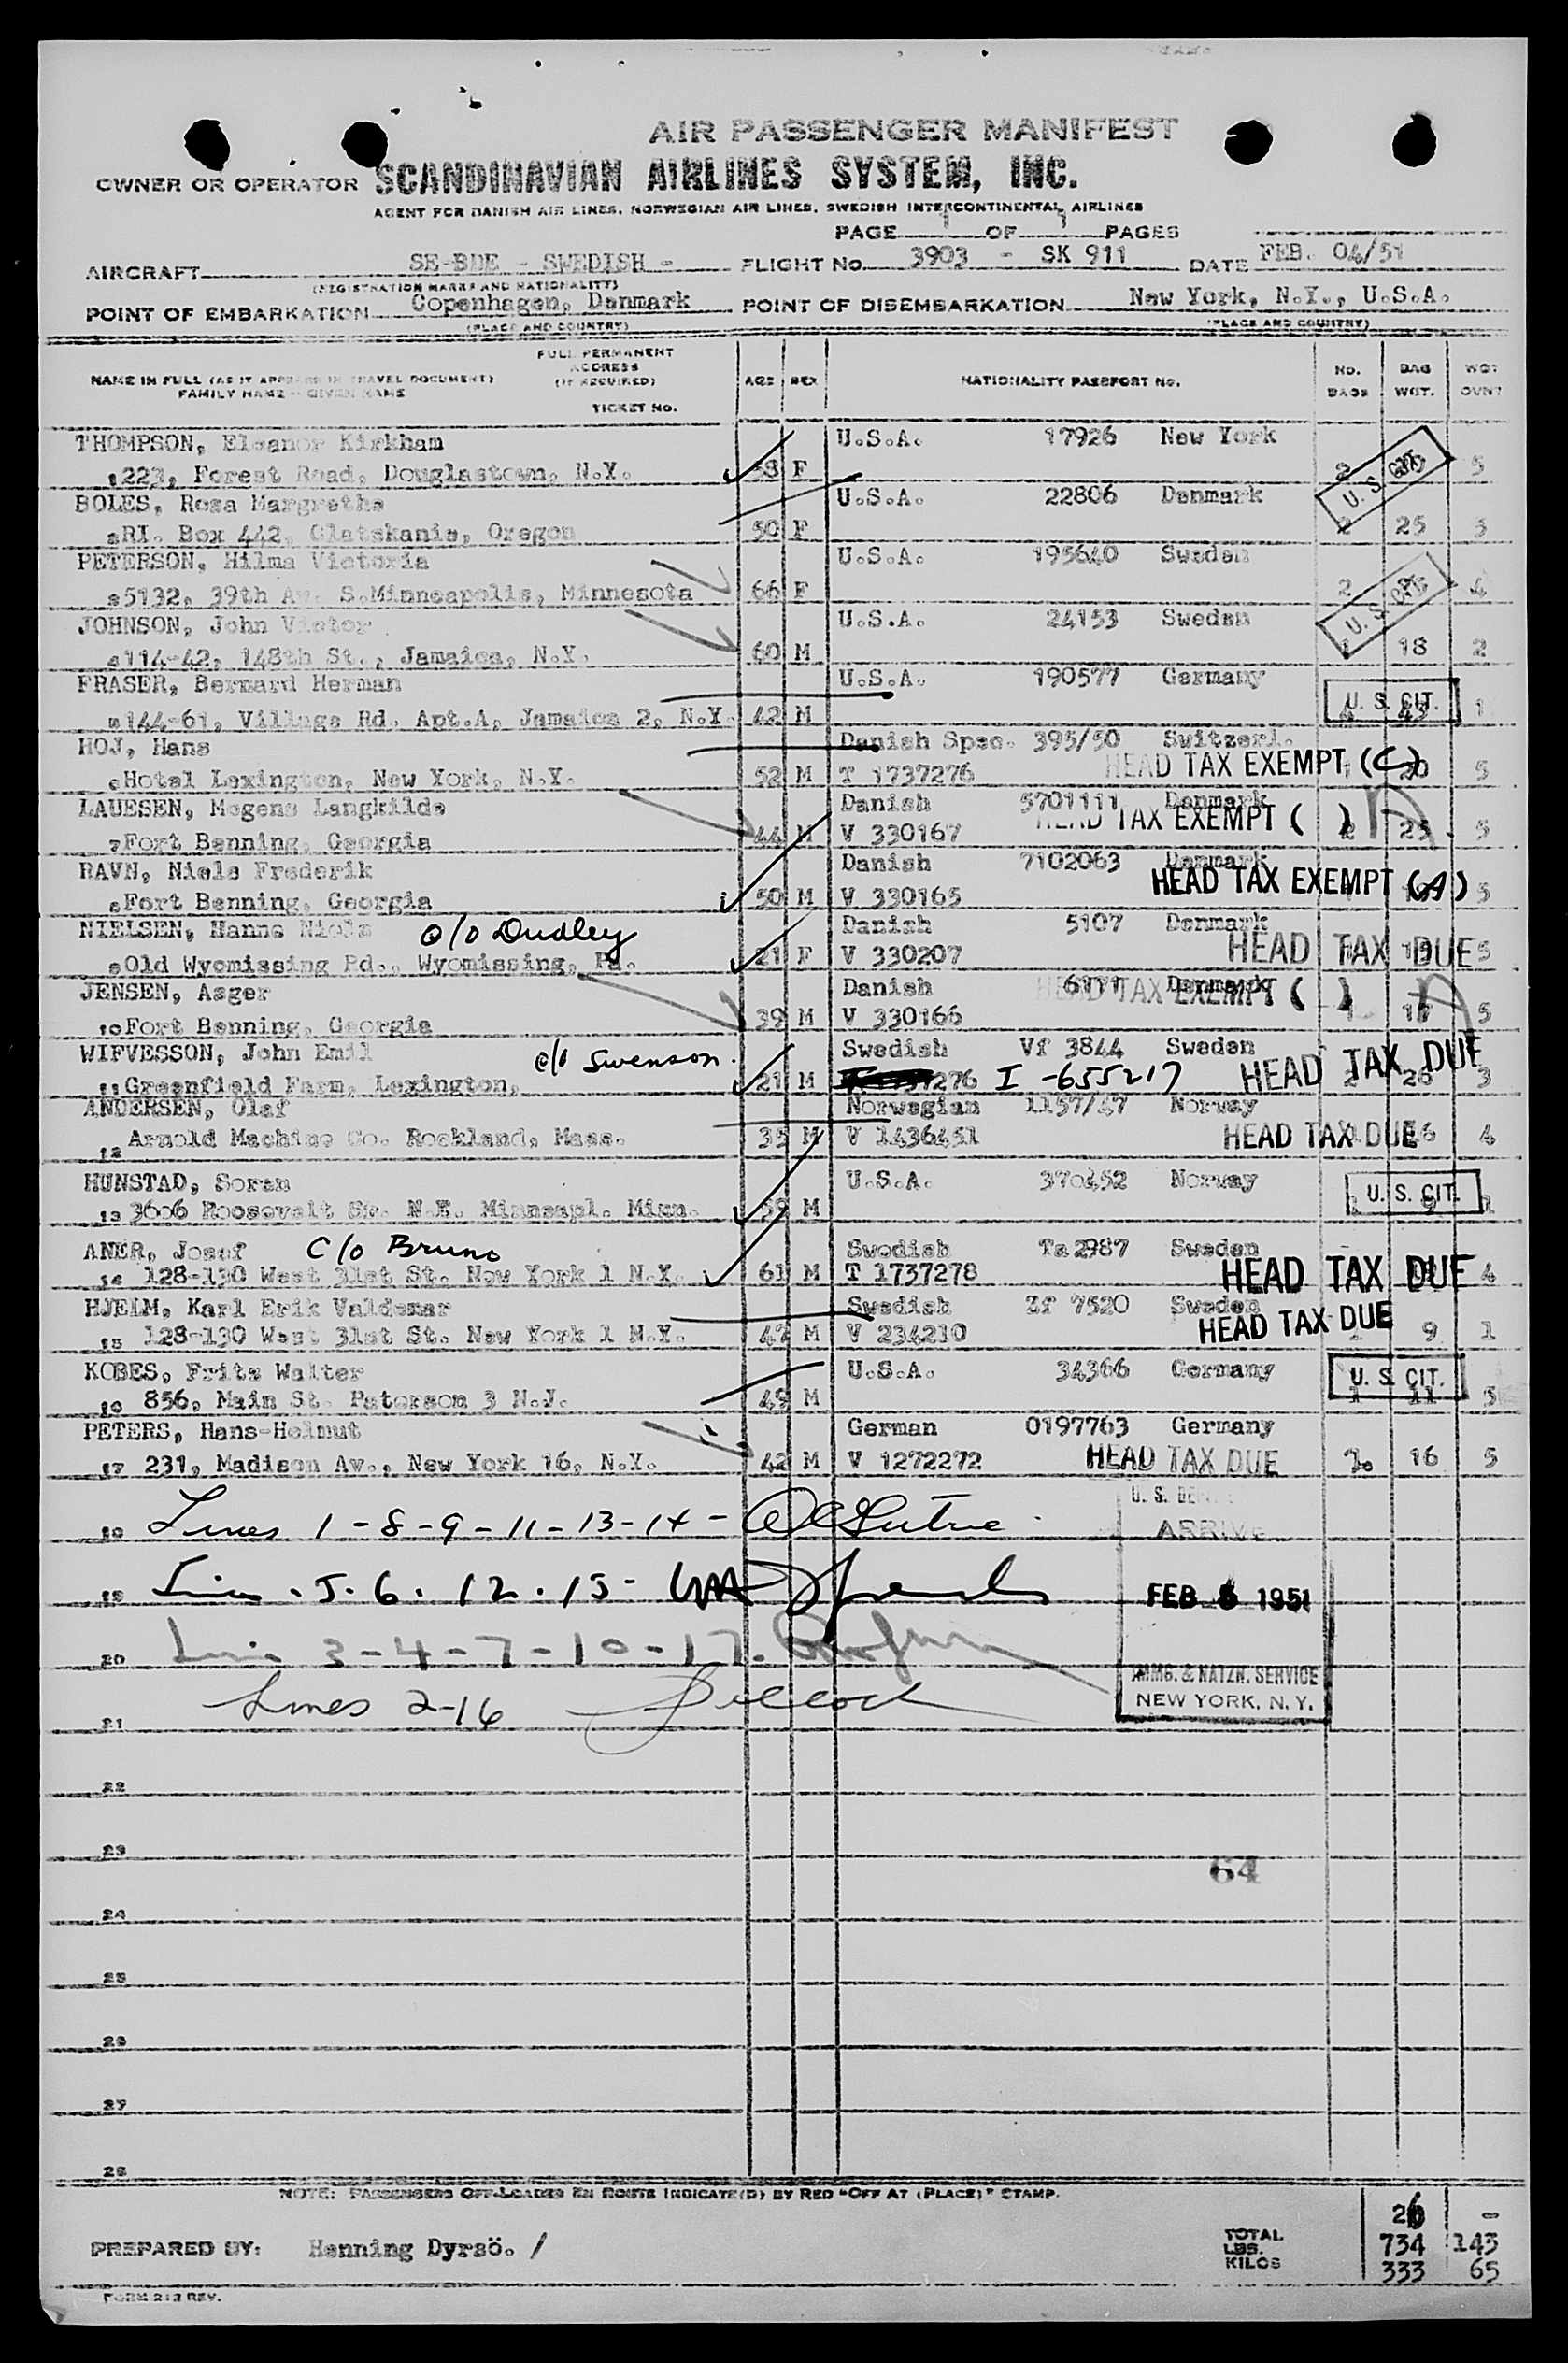 AIR PASSENGER MANIFEST
OWNER OR OPERATOR SCANDINAVIAN AIRLINES SYSTEM, INC.
AGENT FOR DANISH AIR LINES, NORWEGIAN AIR LINES, SWEDISH INTERCONTINENTAL AIRLINES
PAGE 1 OF 1 PAGES
AIRCRAFT SE-BDE - SWEDISH - FLIGHT No. 3903 - SK 911 DATE FEB. 04/51
(REGISTRATION MARKS AND NATIONALITY)
POINT OF EMBARKATION Copenhagen, Denmark POINT OF DISEMBARKATION New York, N.Y., U.S.A.
(PLACE AND COUNTRY) (PLACE AND COUNTRY)
FULL PERMANENT
ADDRESS
(IF REQUIRED)
NAME IN FULL (AS IT APPEARED IN TRAVEL DOCUMENT)
FAMILY NAME - GIVEN NAME
TICKET No.
AGE SEX NATIONALITY PASSPORT No. NO. BAGS BAG WGT. WGT OVNT
THOMPSON, Eleanor Kirkham U.S.A. 17926 New York
1 223, Forest Road, Douglastown, N.Y. 58 F 2 5
U. S. CIT.
BOLES, Rosa Margrethe U.S.A. 22806 Denmark
2 RI. Box 442, Clatskanie, Oregon 50 F 2 25 3
PETERSON, Hilma Victoria U.S.A. 195640 Sweden
3 5132, 39th Av. S.Minneapolis, Minnesota 66 F 2 4
U. S. CIT.
JOHNSON, John Victor U.S.A. 24153 Sweden
4 114-42, 148th St., Jamaica, N.Y. 60 M 1 18 2
FRASER, Bernard Herman U.S.A. 190577 Germany
5 144-61, Village Rd. Apt.A, Jamaica 2, N.Y. 42 M U. S. CIT. 1
HOJ, Hans Danish Spec. 395/50 Switzerl.
6 Hotel Lexington, New York, N.Y. 52 M T 1737276 HEAD TAX EXEMPT (C) 1 20 5
LAUESEN, Mogens Langkilde Danish 5701111 Denmark
7 Fort Benning, Georgia 44 M V 330167 HEAD TAX EXEMPT ( ) 2 25 5
RAVN, Niels Frederik Danish 7102063 Denmark
8 Fort Benning, Georgia 50 M V 330165 HEAD TAX EXEMPT (A) 5
NIELSEN, Hanne Niels c/o Dudley Danish 5107 Denmark
9 Old Wyomissing Rd., Wyomissing, Pa. 21 F V 330207 HEAD TAX DUE 5
JENSEN, Asger Danish 6171 Denmark
10 Fort Benning, Georgia 39 M V 330166 HEAD TAX EXEMPT ( ) 1 17 5
WIFVESSON, John Emil c/o Swenson. Swedish Vf 3844 Sweden
11 Greenfield Farm, Lexington, 21 M 276 I -655217 HEAD TAX DUE 2 26 3
ANDERSEN, Olaf Norwegian 1157/47 Norway
12 Arnold Machine Co. Rockland, Mass. 35 M V 1436451 HEAD TAX DUE 4
HUNSTAD, Soren U.S.A. 370452 Norway
13 3606 Roosevelt St. N.E. Minneapl. Minn. 59 M U. S. CIT.
ANER, Josef C/o Bruno Swedish Ta 2987 Sweden
14 128-130 West 31st St. New York 1 N.Y. 61 M T 1737278 HEAD TAX DUE 4
HJELM, Karl Erik Valdemar Swedish Zf 7520 Sweden
15 128-130 West 31st St. New York 1 N.Y. 47 M V 234210 HEAD TAX DUE 1 9 1
KOBES, Fritz Walter U.S.A. 34366 Germany
16 856, Main St. Paterson 3 N.J. 49 M U. S. CIT. 1 11 5
PETERS, Hans-Helmut German 0197763 Germany
17 231, Madison Av., New York 16, N.Y. 42 M V 1272272 HEAD TAX DUE 2 16 5
18 Lines 1-8-9-11-13-14-
19 Lines . 5. 6. 12. 15-
20 Lines 3-4-7-10-17.
21 Lines 2-16
U. S. DEPT.
ARRIVE
FEB 5 1951
IMMG. & NATZN. SERVICE
NEW YORK, N.Y.
22
23
64
24
25
26
27
28
NOTE: PASSENGERS OFF-LOADED EN ROUTE INDICATE(D) BY RED "OFF AT (PLACE)" STAMP.
PREPARED BY: Henning Dyrsö. /
TOTAL 26 -
LBS. 734 143
KILOS 333 65
FORM 212 REV.